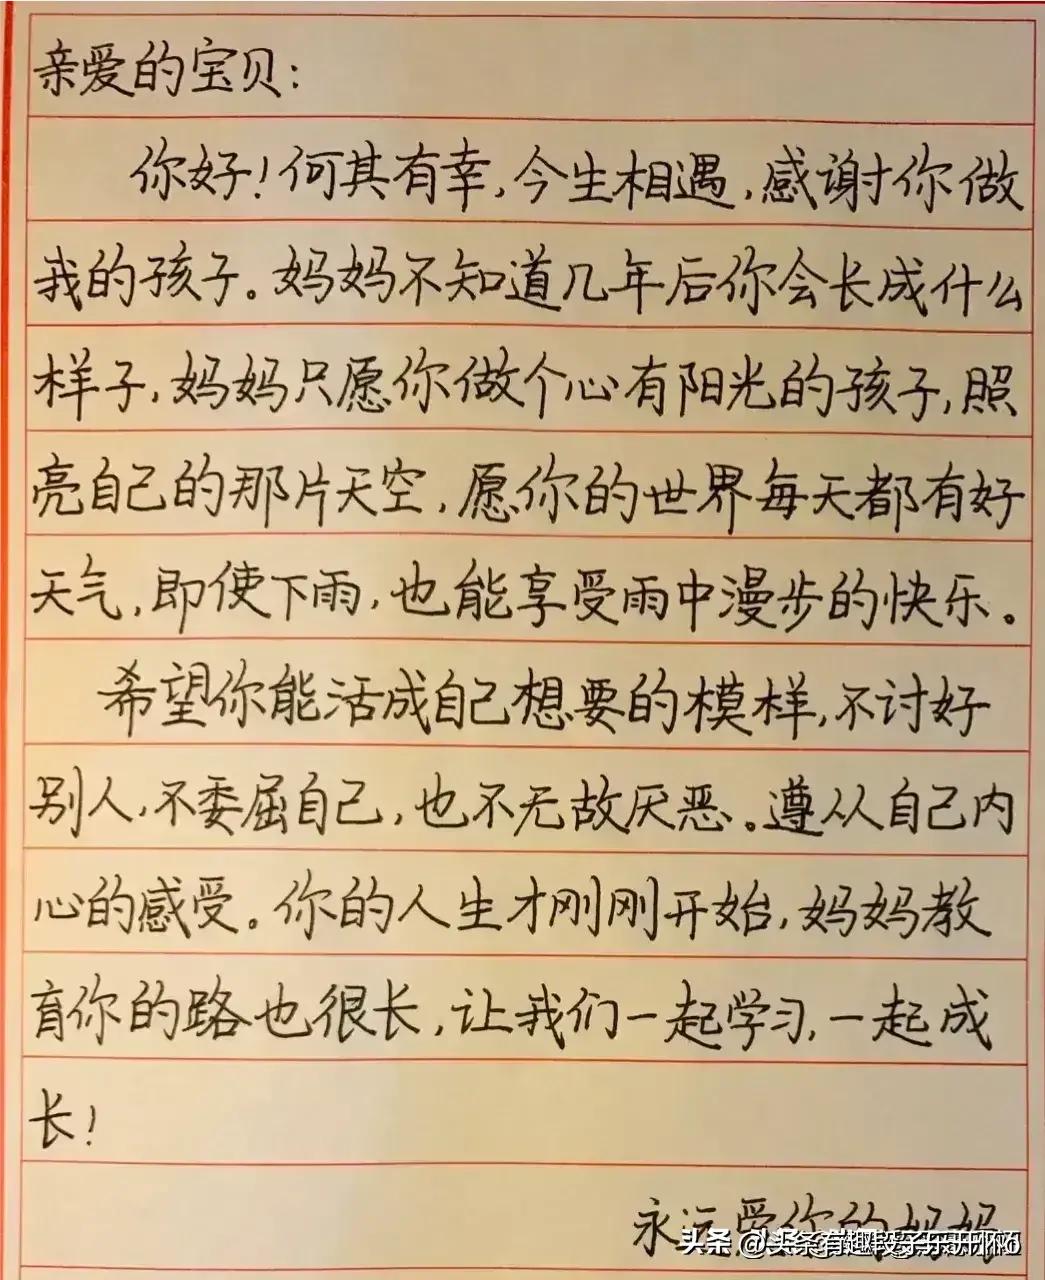 亲爱的宝贝：
你好！何其有幸，今生相遇，感谢你做
我的孩子。妈妈不知道几年后你会长成什么
样子，妈妈只愿你做个心有阳光的孩子，照
亮自己的那片天空，愿你的世界每天都有好
天气，即使下雨，也能享受雨中漫步的快乐。
希望你能活成自己想要的模样，不讨好
别人，不委屈自己，也不无故厌恶。遵从自己内
心的感受。你的人生才刚刚开始，妈妈教
育你的路也很长，让我们一起学习，一起成
长！
永远爱你的妈妈
头条 @头条有趣段子